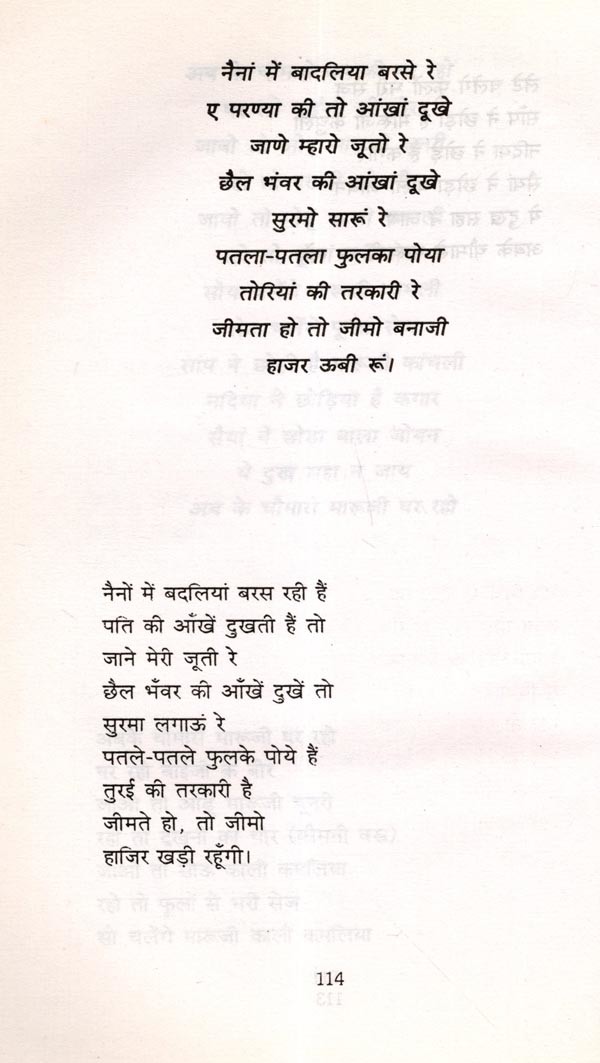 नैनां में बादलिया बरसे रे
ए परण्या की तो आंखां दूखे
जाणे म्हारो जूतो रे
छैल भंवर की आंखां दूखे
सुरमो सारूं रे
पतला-पतला फुलका पोया
तोरियां की तरकारी रे
जीमता हो तो जीमो बनाजी
हाजर ऊबी रूं।
नैनों में बदलियां बरस रही हैं
पति की आँखें दुखती हैं तो
जाने मेरी जूती रे
छैल भँवर की आँखें दुखें तो
सुरमा लगाऊं रे
पतले-पतले फुलके पोये हैं
तुरई की तरकारी है
जीमते हो, तो जीमो
हाजिर खड़ी रहूँगी।
114